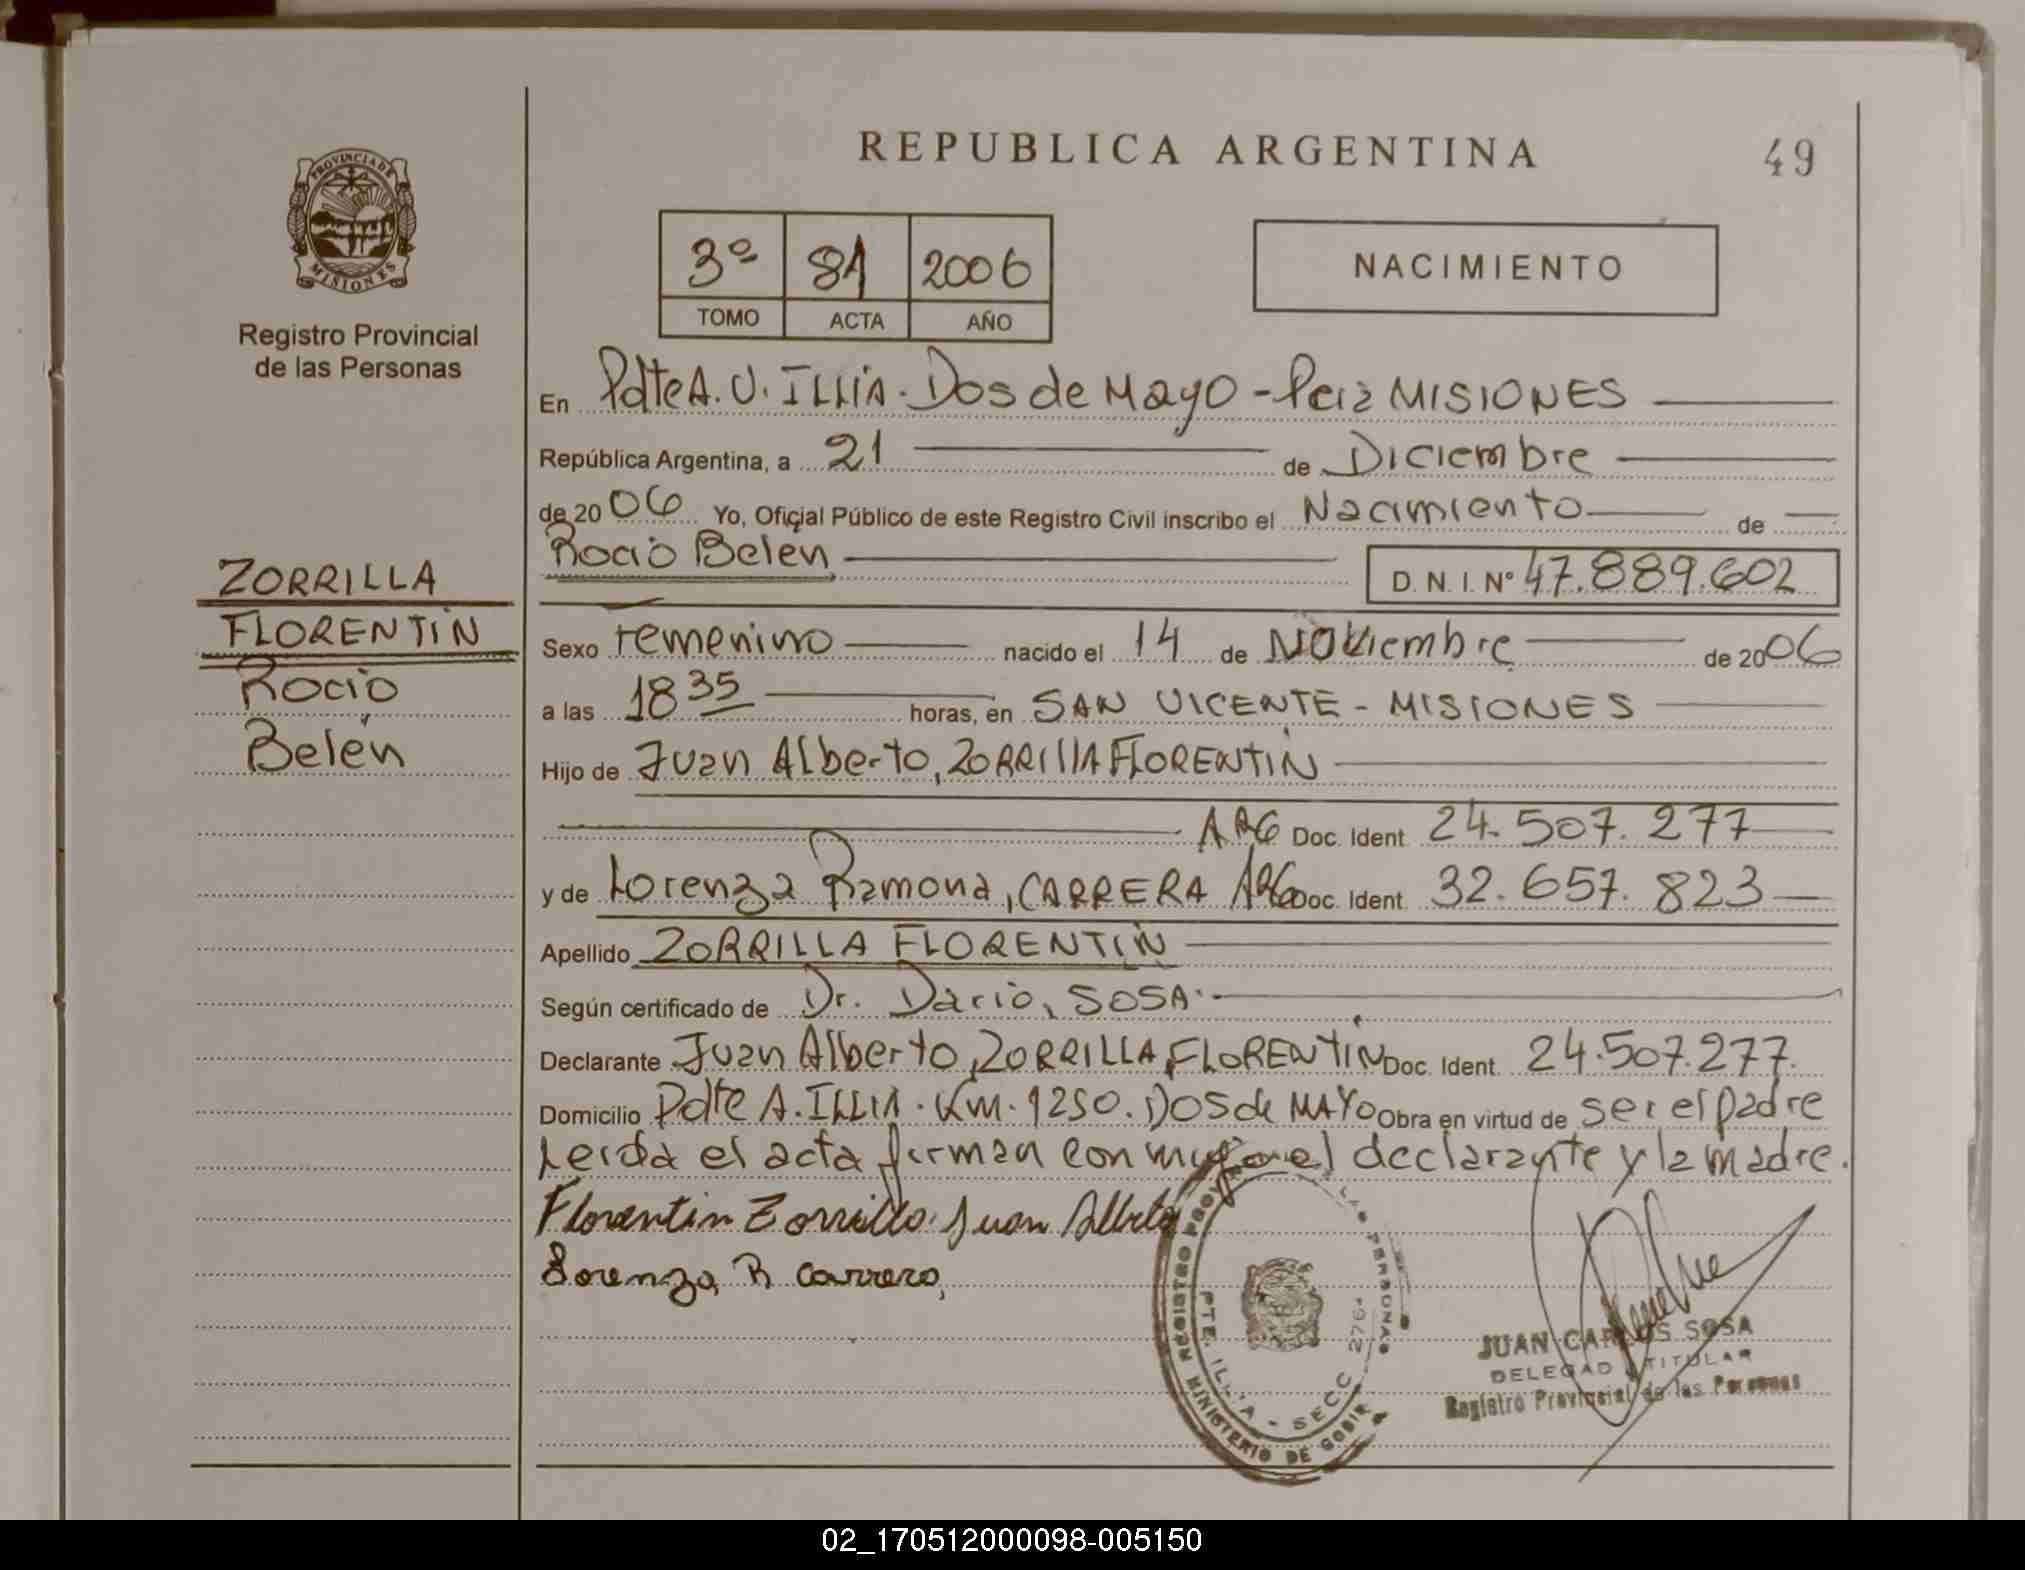 REPUBLICA ARGENTINA
49
PROVINCIA DE
MISIONES
Registro Provincial
de las Personas
3º 81 2006
TOMO ACTA AÑO
NACIMIENTO
En Pdte A. U. ILLIA. Dos de Mayo - MISIONES
República Argentina, a 21 de Diciembre
de 2006 Yo, Oficial Público de este Registro Civil inscribo el Nacimiento de
Rocio Belén D. N. I. Nº 47.889.602
ZORRILLA
FLORENTIN
Rocio
Belén
Sexo Femenino nacido el 14 de Noviembre de 2006
a las 18 35 horas, en SAN VICENTE - MISIONES
Hijo de Juan Alberto, ZORRIllA FLORENTIN
ARG Doc. Ident. 24.507.277
y de Lorenza Ramona, CARRERA ARG Doc. Ident. 32.657.823
Apellido ZORRILLA FLORENTIN
Según certificado de Dr. Dario, SOSA
Declarante Juan Alberto, ZORRILLA FLORENTIN Doc. Ident. 24.507.277.
Domicilio Pdte A. ILLIA. Km. 1250. DOS de MAYO Obra en virtud de ser el padre
Leida el acta firman conmigo el declarante y la madre.
Florentin Zorrilla Juan Alberto
Lorenza R Carrera
REGISTRO PROV. LAS PERSONAS
PTE. ILLIA - SECC. 2761
MINISTERIO DE GOBIER
JUAN CARLOS SOSA
DELEGADO TITULAR
Registro Provincial de las Personas
02_170512000098-005150